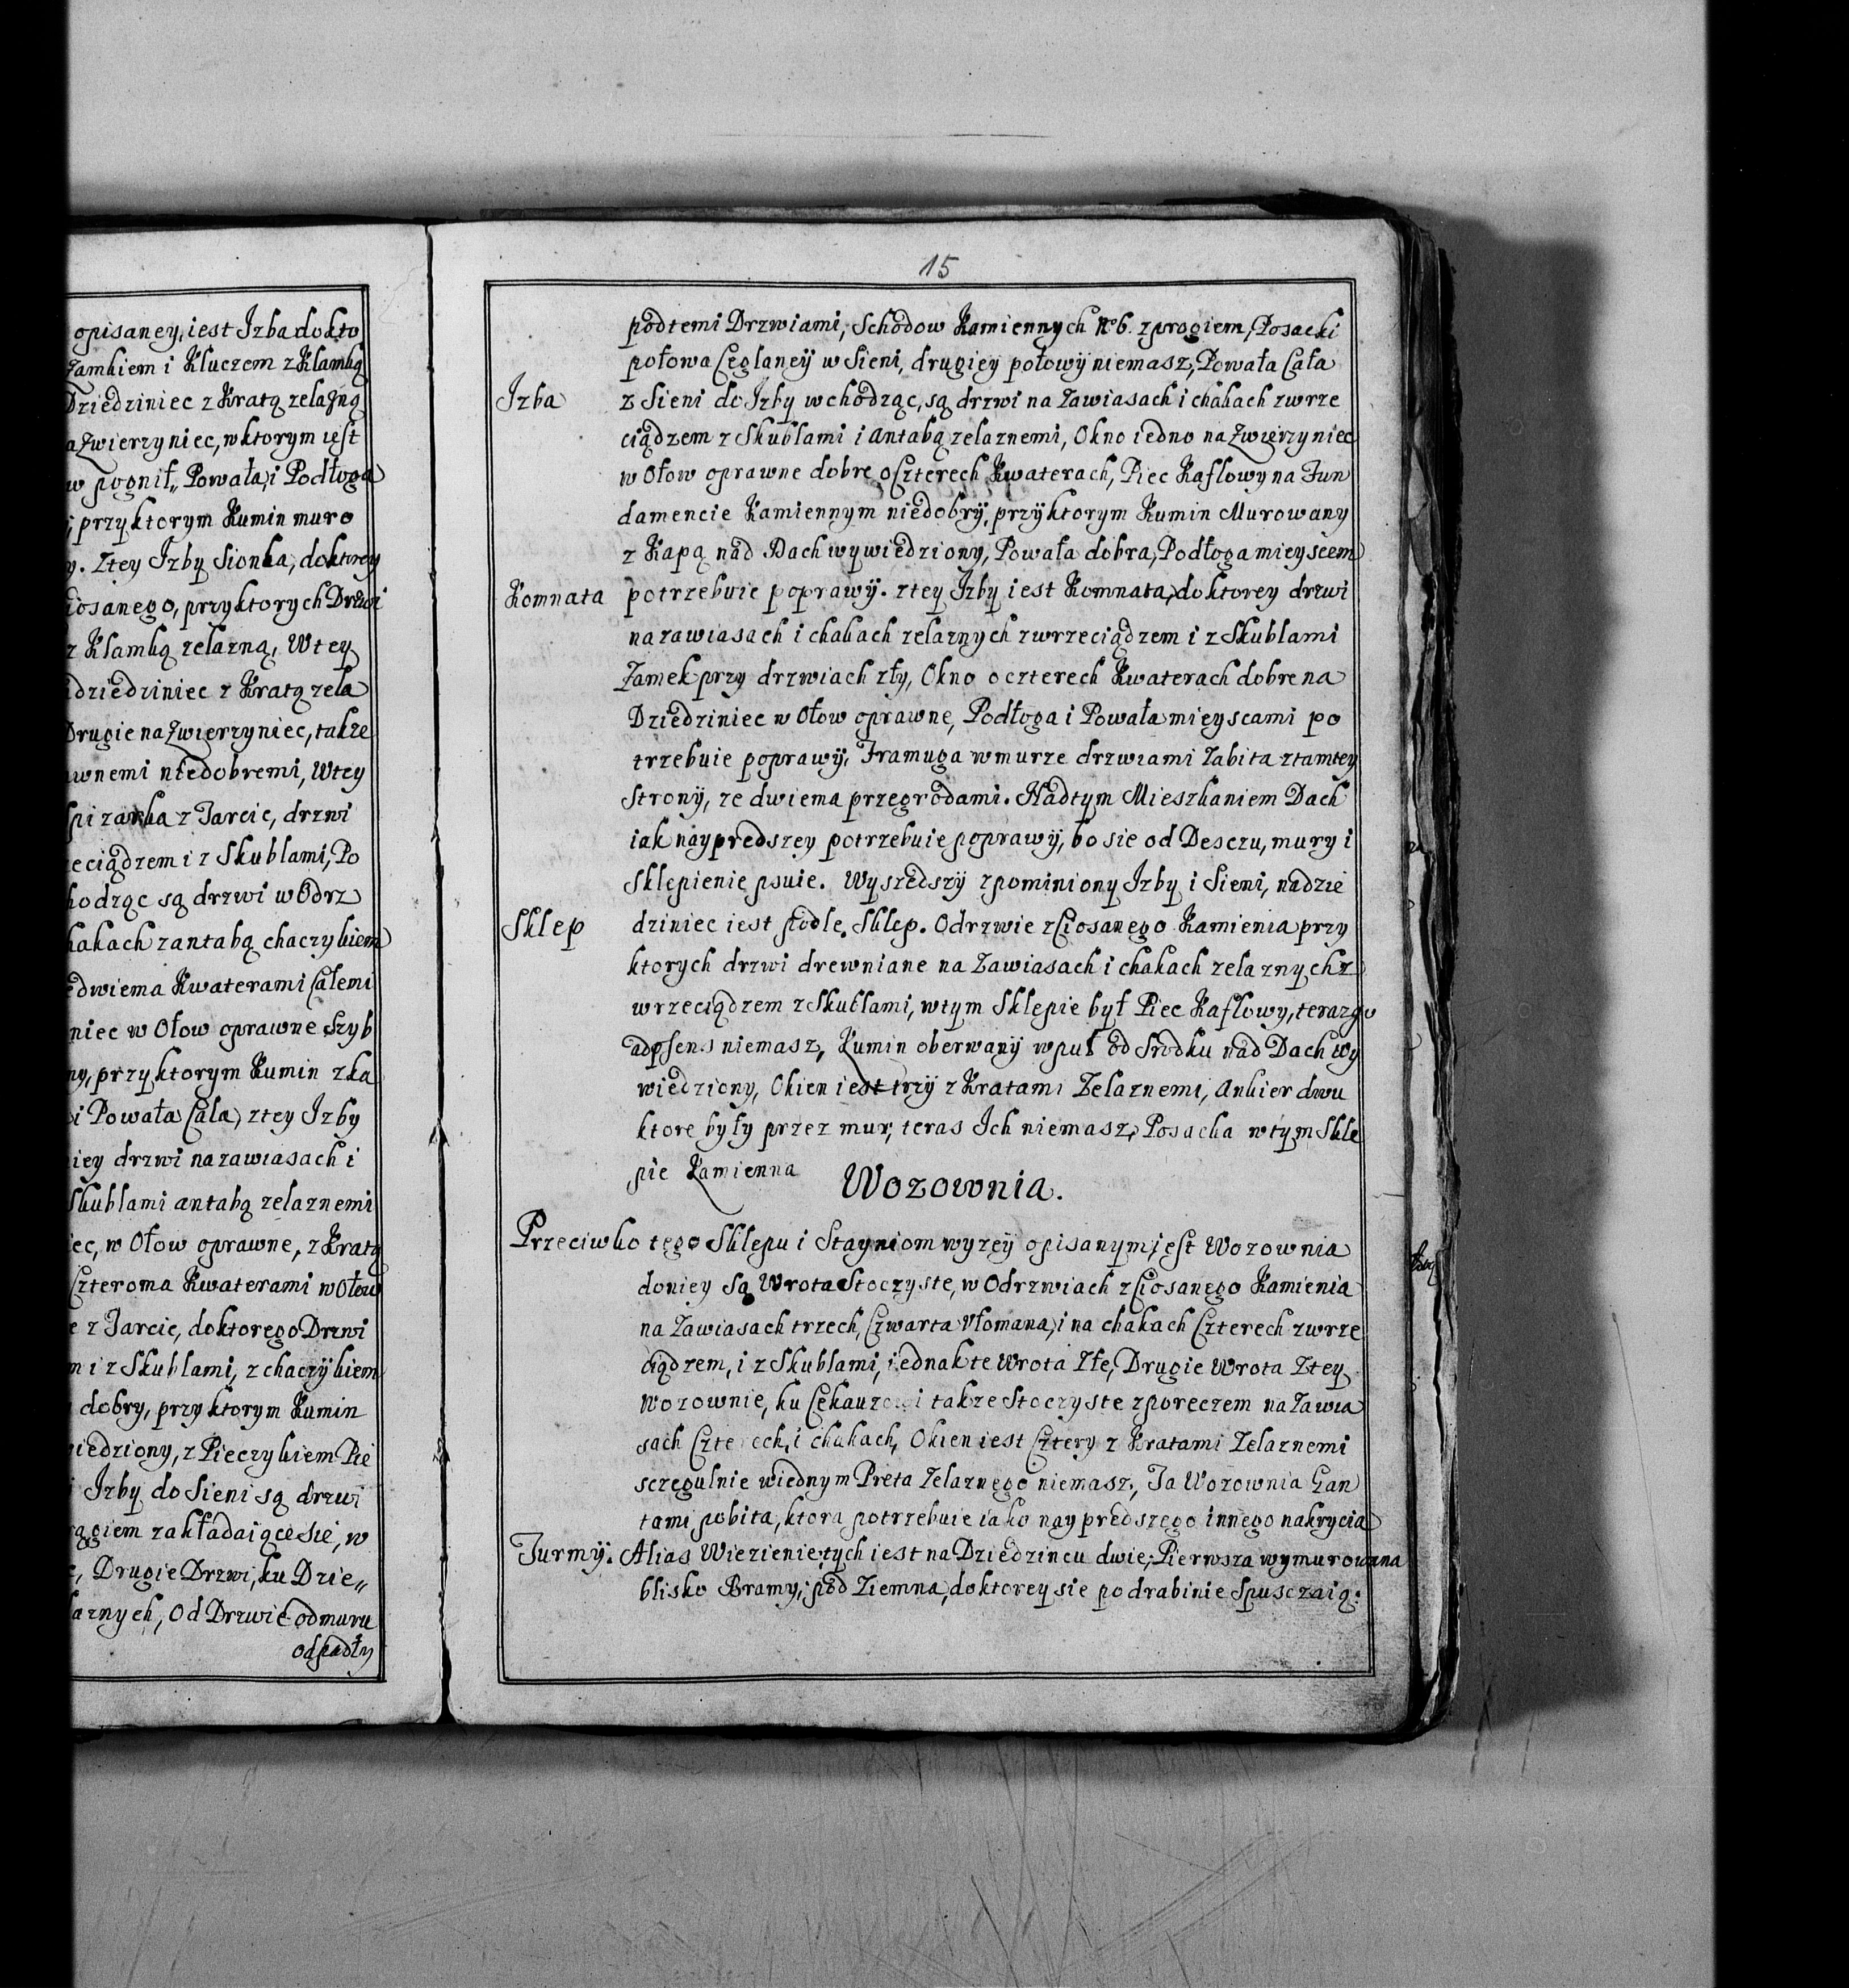 opisaney, iest Izba dokto
Zamkiem i Kluczem z Klamką
Dziedziniec z Kratą zelazną
a Zwierzyniec, w ktorym iest
w pognił„ Powała, i Podłoga
przy ktorym Kumin muro
y. Ztey Izby Sionka, doktorey
iosanego, przy ktorych Drzwi
z Klamką zelazną, Wtey
dziedziniec z Kratą zela
Drugie na Zwierzyniec, takze
wnemi niedobremi, Wtey
spizarka z Tarcic, drzwi
eciądzem i z Skublami, Po
hodząc są drzwi w Odrz
hakach z antabą chaczykiem
edwiema Kwaterami Całemi
niec w Ołow oprawne Szyb
ny, przy ktorym Kumin zka
i Powała Cala, ztey Izby
niey drzwi na zawiasach i
Skublami antabą zelaznemi
iec, w Ołow oprawne, z Kratą
Czteroma Kwaterami w Ołow
e z Tarcic, do ktorego Drzwi
m i z Skublami, z chaczykiem
dobry, przy ktorym Kumin
iedziony, z Pieczykiem Pie
Izby do Sieni są drzwi
ągiem zakładaiące się, w
Drugie Drzwi, ku Dzie„
laznych, Od Drzwic od muru
odpadły
15
podtemi Drzwiami, Schodow Kamiennych No 6. z progiem, Posacki
połowa Ceglaneÿ w Sieni, drugiey połowÿ niemasz, Powała Cała
Izba z Sieni do Izby wchodząc, są drzwi na Zawiasach i chakach zwrze
ciądzem z Skublami i Antabą zelaznemi, Okno iedno na Zwierzyniec
w Ołow oprawne dobre o Czterech Kwaterach, Piec Kaflowy na Fun
damencie Kamiennym niedobrÿ, przÿ ktorym Kumin Murowany
z Kapą nad Dach wywiedziony, Powała dobra, Podłoga mieyscem
Komnata potrzebuie poprawÿ. ztey Izby iest Komnata, doktorey drzwi
na zawiasach i chakach zelaznych zwrzeciądzem i z Skublami
Zamek przy drzwiach zły, Okno o czterech Kwaterach dobre na
Dziedziniec w Ołow oprawne, Podłoga i Powała mieyscami po
trzebuie poprawÿ, Framuga w murze drzwiami Zabita ztamtey
Stronÿ, ze dwiema przegrodami. Nadtym Mieszkaniem Dach
iak naypredszey potrzebuie poprawÿ, bo sie od Desczu, mury i
Sklepienie psuie. Wyszedszÿ zpominiony Izby i Sieni, nadzie
Sklep dziniec iest podle Sklep. Odrzwie z Ciosanego Kamienia przy
ktorych drzwi drewniane na Zawiasach i chakach zelaznych z
wrzeciądzem z Skublami, wtym Sklepie był Piec Kaflowy, teraz go
adpsens niemasz, Kumin oberwanÿ wpuł od Srodku nad Dach wy
wiedziony, Okien iest trzÿ z Kratami Zelaznemi, Ankier dwu
ktore były przez mur, teras Ich niemasz, Posacka wtym Skle
pie Kamienna
Wozownia.
Przeciwko tego Sklepu i Stayniom wyzeÿ opisanym, jest Wozownia
doniey Są Wrota Stoczyste, w Odrzwiach z Ciosanego Kamienia
na Zawiasach trzech, Czwarta Vłomana, i na chakach Czterech zwrze
ciądzem, i z Skublami, iednak te Wrota Złe, Drugie Wrota Ztey
Wozownie, ku takze Stoczyste z poreczem na Zawia
sach Czterech, i chakach, Okien iest Cztery z Kratami Zelaznemi
sczegulnie wiednym Preta Zelaznego niemasz, Ta Wozownia Gan
tami pobita, ktora potrzebuie iako naypredszego innego nakrycia
Turmÿ. Alias Wiezienie, tych iest na Dziedzincu dwie, Pierwsza wymurowana
blisko Bramy, pod Ziemna, doktorey sie po drabinie Spusczaią: